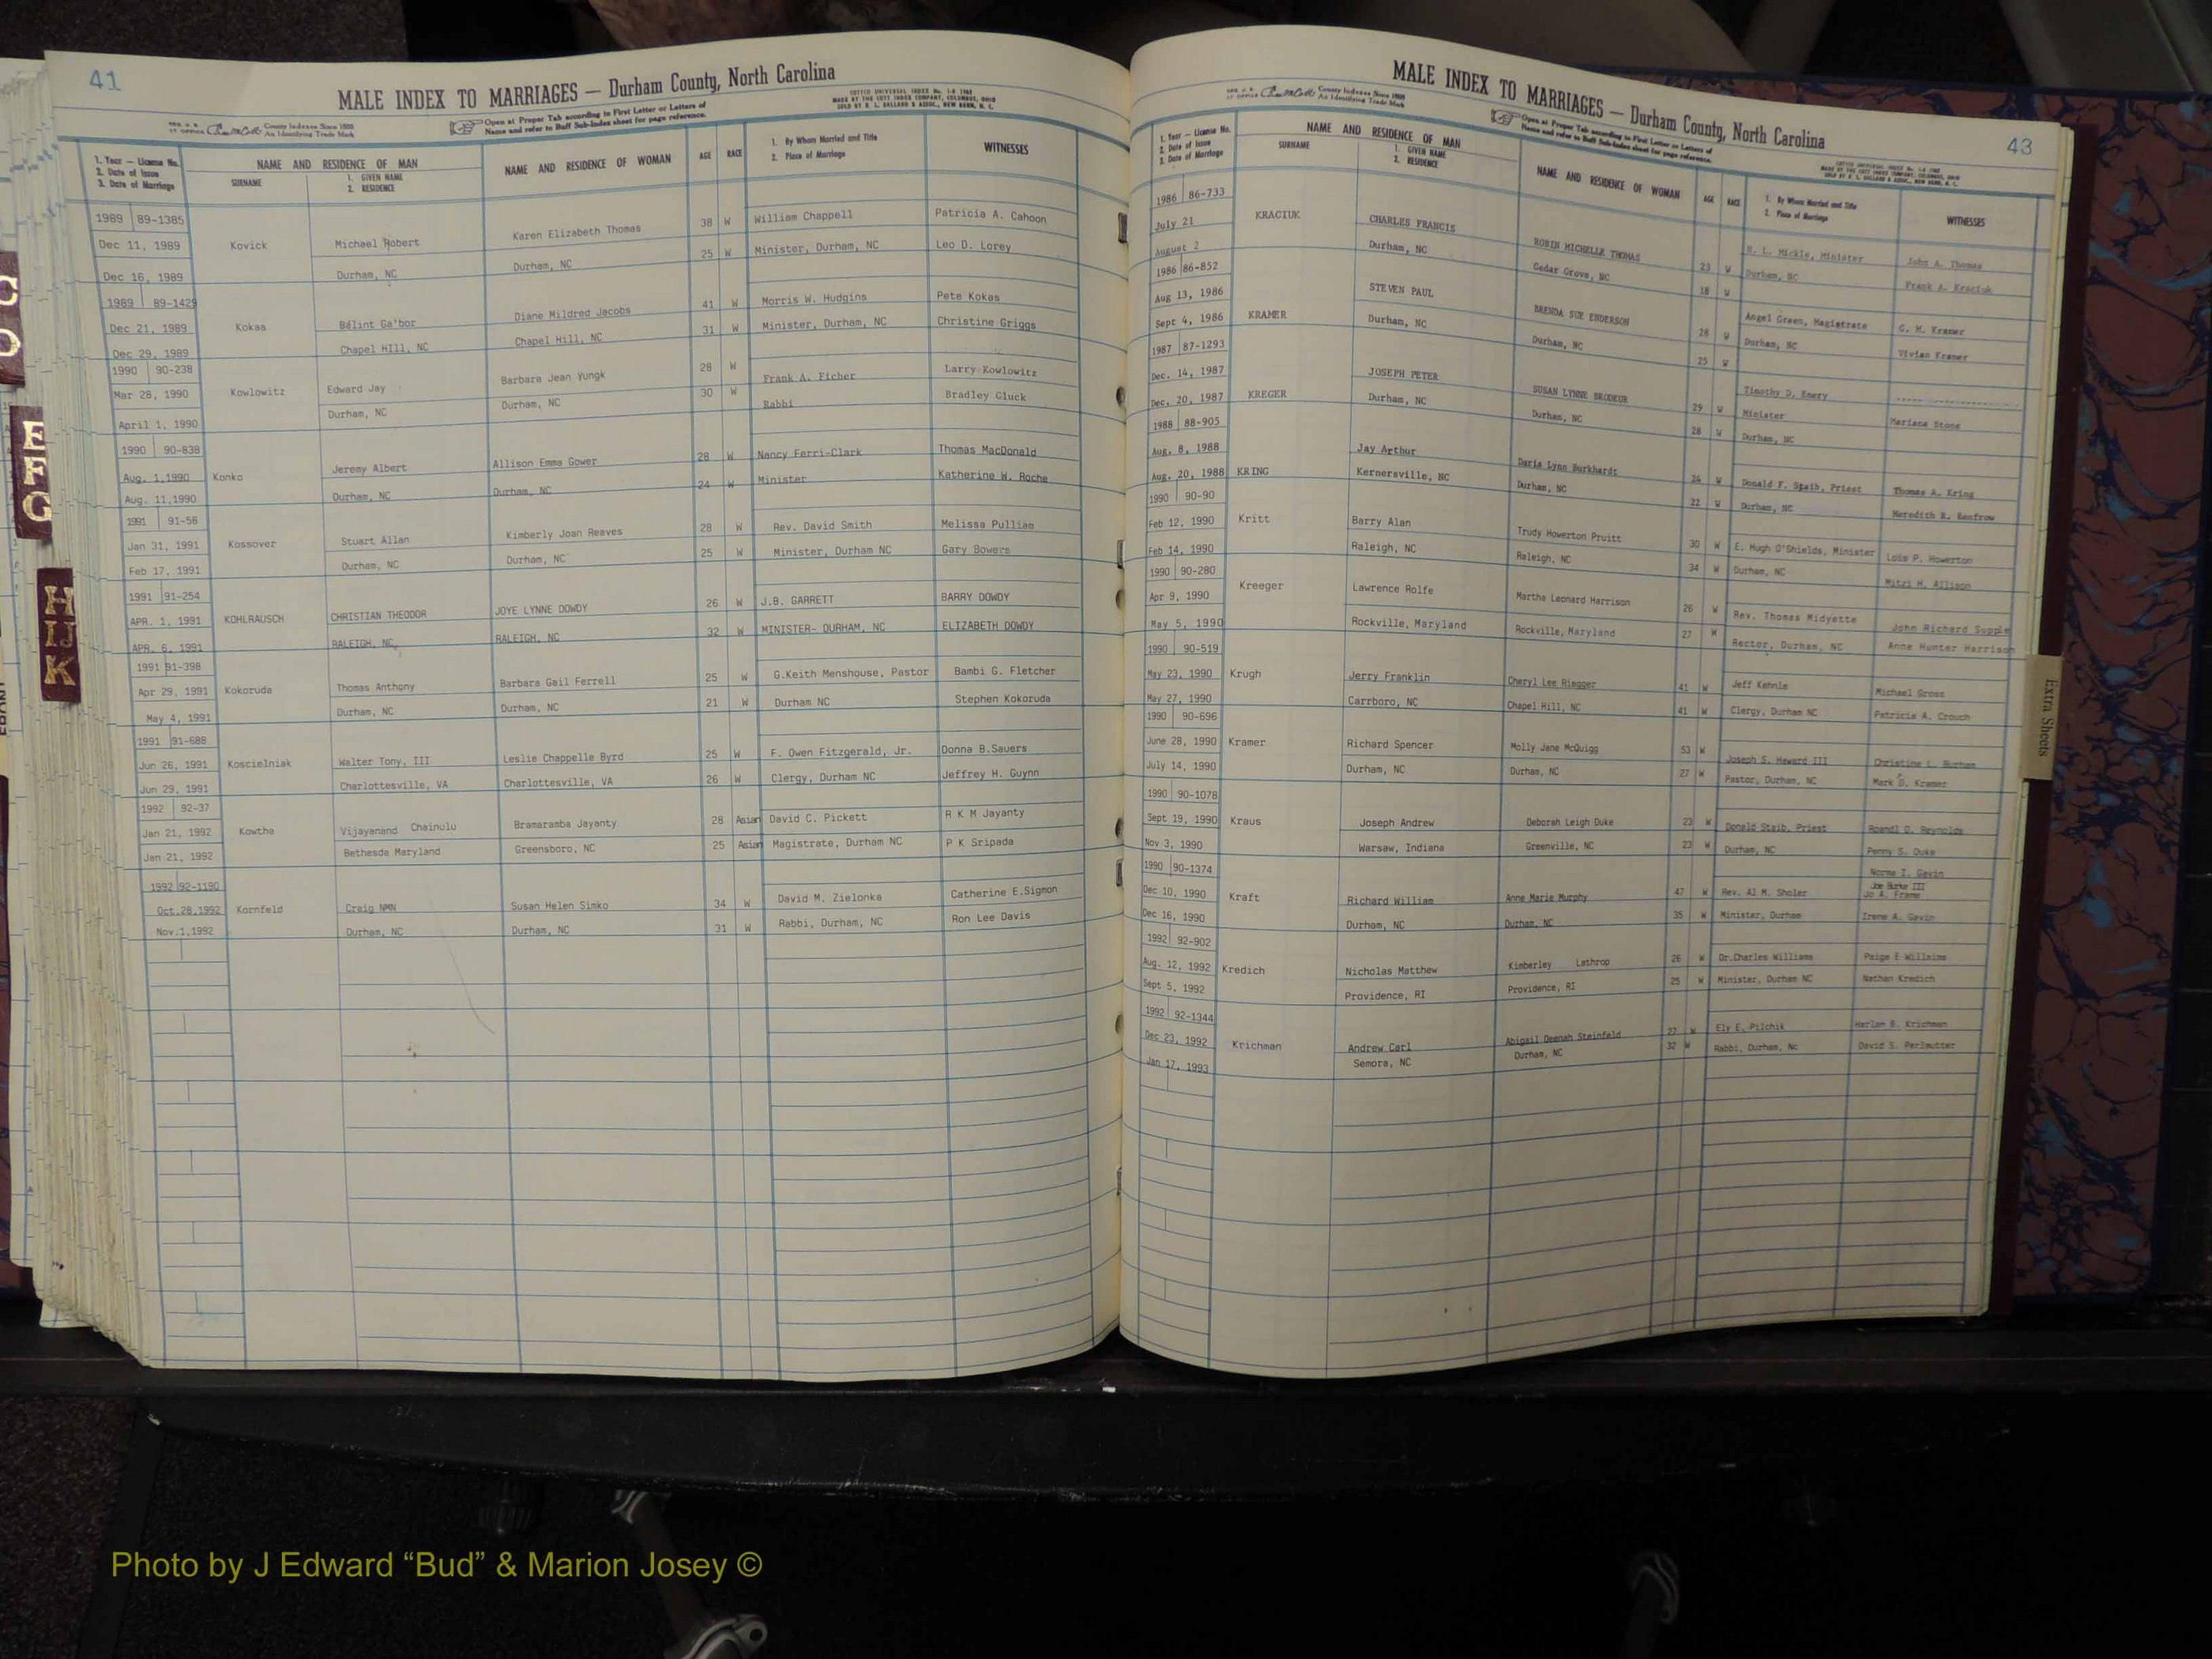 41
MALE INDEX TO MARRIAGES — Durham County, North Carolina
COTTCO UNIVERSAL INDEX
MADE BY THE COTT INDEX COMPANY, COLUMBUS, OHIO
SOLD BY R. L. BALLARD & ASSOC., NEW BERN, N. C.
County Indexes Since 1888
An Identifying Trade Mark
Open at Proper Tab according to First Letter or Letters of
Name and refer to Buff Sub-Index sheet for page reference.
1. Year — License No.
2. Date of Issue
3. Date of Marriage
NAME AND RESIDENCE OF MAN
SURNAME
1. GIVEN NAME
2. RESIDENCE
NAME AND RESIDENCE OF WOMAN
AGE
RACE
1. By Whom Married and Title
2. Place of Marriage
WITNESSES
1989 89-1385 38 W William Chappell Patricia A. Cahoon
Dec 11, 1989 Kovick Michael Robert Karen Elizabeth Thomas 25 W Minister, Durham, NC Leo D. Lorey
Dec 16, 1989 Durham, NC Durham, NC
1989 89-1429 41 W Morris W. Hudgins Pete Kokas
Dec 21, 1989 Kokas Bélint Ga'bor Diane Mildred Jacobs 31 W Minister, Durham, NC Christine Griggs
Dec 29, 1989 Chapel HIll, NC Chapel Hill, NC
1990 90-238 28 W Frank A. Ficher Larry Kowlowitz
Mar 28, 1990 Kowlowitz Edward Jay Barbara Jean Yungk 30 W Rabbi Bradley Gluck
April 1, 1990 Durham, NC Durham, NC
1990 90-838 28 W Nancy Ferri-Clark Thomas MacDonald
Aug. 1,1990 Konkc Jeremy Albert Allison Emma Gower 24 W Minister Katherine W. Roche
Aug. 11,1990 Durham, NC Durham, NC
1991 91-56 28 W Rev. David Smith Melissa Pulliam
Jan 31, 1991 Kossover Stuart Allan Kimberly Joan Reaves 25 W Minister, Durham NC Gary Bowers
Feb 17, 1991 Durham, NC Durham, NC
1991 91-254 26 W J.B. GARRETT BARRY DOWDY
APR. 1, 1991 KOHLRAUSCH CHRISTIAN THEODOR JOYE LYNNE DOWDY 32 W MINISTER- DURHAM, NC ELIZABETH DOWDY
APR. 6, 1991 RALEIGH, NC RALEIGH, NC
1991 91-398 25 W G.Keith Menshouse, Pastor Bambi G. Fletcher
Apr 29, 1991 Kokoruda Thomas Anthony Barbara Gail Ferrell 21 W Durham NC Stephen Kokoruda
May 4, 1991 Durham, NC Durham, NC
1991 91-688 25 W F. Owen Fitzgerald, Jr. Donna B.Sauers
Jun 26, 1991 Koscielniak Walter Tony, III Leslie Chappelle Byrd 26 W Clergy, Durham NC Jeffrey H. Guynn
Jun 29, 1991 Charlottesville, VA Charlottesville, VA
1992 92-37 28 Asian David C. Pickett R K M Jayanty
Jan 21, 1992 Kowtha Vijayanand Chainulu Bramaramba Jayanty 25 Asian Magistrate, Durham NC P K Sripada
Jan 21, 1992 Bethesda Maryland Greensboro, NC
1992 92-1190 34 W David M. Zielonka Catherine E.Sigmon
Oct.28,1992 Kornfeld Craig NMN Susan Helen Simko 31 W Rabbi, Durham, NC Ron Lee Davis
Nov.1,1992 Durham, NC Durham, NC
C
D
E
F
G
H
IJ
K
MALE INDEX TO MARRIAGES — Durham County, North Carolina
43
County Indexes Since 1888
An Identifying Trade Mark
Open at Proper Tab according to First Letter or Letters of
Name and refer to Buff Sub-Index sheet for page reference.
1. Year — License No.
2. Date of Issue
3. Date of Marriage
NAME AND RESIDENCE OF MAN
SURNAME
1. GIVEN NAME
2. RESIDENCE
NAME AND RESIDENCE OF WOMAN
AGE
RACE
1. By Whom Married and Title
2. Place of Marriage
WITNESSES
1986 86-733
July 21 KRACIUK CHARLES FRANCIS ROBIN MICHELLE THOMAS 23 W L. Mickle, Minister John A. Thomas
August 2 Durham, NC Cedar Grove, NC 18 W Durham, NC Frank A. Kraciuk
1986 86-852
Aug 13, 1986 STEVEN PAUL BRENDA SUE ENDERSON 28 W Angel Green, Magistrate G. M. Kramer
Sept 4, 1986 KRAMER Durham, NC Durham, NC 25 W Durham, NC Vivian Kramer
1987 87-1293
Dec. 14, 1987 JOSEPH PETER SUSAN LYNNE BRODEUR 29 W Timothy D. Emery
Dec. 20, 1987 KREGER Durham, NC Durham, NC 28 W Minister Mariana Stone
Durham, NC
1988 88-905
Aug. 8, 1988 Jay Arthur Daria Lynn Burkhardt 24 W Donald F. Staib, Priest Thomas A. Kring
Aug. 20, 1988 KRING Kernersville, NC Durham, NC 22 W Durham, NC Meredith R. Renfrow
1990 90-90
Feb 12, 1990 Kritt Barry Alan Trudy Howerton Pruitt 30 W E. Hugh O'Shields, Minister Lois P. Howerton
Feb 14, 1990 Raleigh, NC Raleigh, NC 34 W Durham, NC Mitzi H. Allison
1990 90-280
Apr 9, 1990 Kreeger Lawrence Rolfe Martha Leonard Harrison 26 W Rev. Thomas Midyette John Richard Supple
May 5, 1990 Rockville, Maryland Rockville, Maryland 27 W Rector, Durham, NC Anne Hunter Harrison
1990 90-519
May 23, 1990 Krugh Jerry Franklin Cheryl Lee Riegger 41 W Jeff Kehnle Michael Gross
May 27, 1990 Carrboro, NC Chapel Hill, NC 41 W Clergy, Durham NC Patricia A. Crouch
1990 90-696
June 28, 1990 Kramer Richard Spencer Molly Jane McQuigg 53 W Joseph S. Haward III Christine L. Burham
July 14, 1990 Durham, NC Durham, NC 27 W Pastor, Durham, NC Mark D. Kramer
1990 90-1078
Sept 19, 1990 Kraus Joseph Andrew Deborah Leigh Duke 23 W Donald Staib, Priest Reynolds
Nov 3, 1990 Warsaw, Indiana Greenville, NC 23 W Durham, NC Penny S. Duke
1990 90-1374 Norma I. Gavin
Joe Burke III
Dec 10, 1990 Kraft Richard William Anne Marie Murphy 47 W Rev. Al M. Sholer Jo A. Frame
Dec 16, 1990 Durham, NC Durham, NC 35 W Minister, Durham Irene A. Gavin
1992 92-902
Aug. 12, 1992 Kredich Nicholas Matthew Kimberley Lathrop 26 W Dr.Charles Williams Paige E Willaims
Sept 5, 1992 Providence, RI Providence, RI 25 W Minister, Durham NC Nathan Kredich
1992 92-1344
Dec 23, 1992 Krichman Andrew Carl Abigail Deenah Steinfeld 27 W Ely E. Pilchik Harlan B. Krichman
Jan 17, 1993 Semora, NC Durham, NC 32 W Rabbi, Durham, Nc David S. Perlmutter
Extra Sheets
Photo by J Edward “Bud” & Marion Josey ©